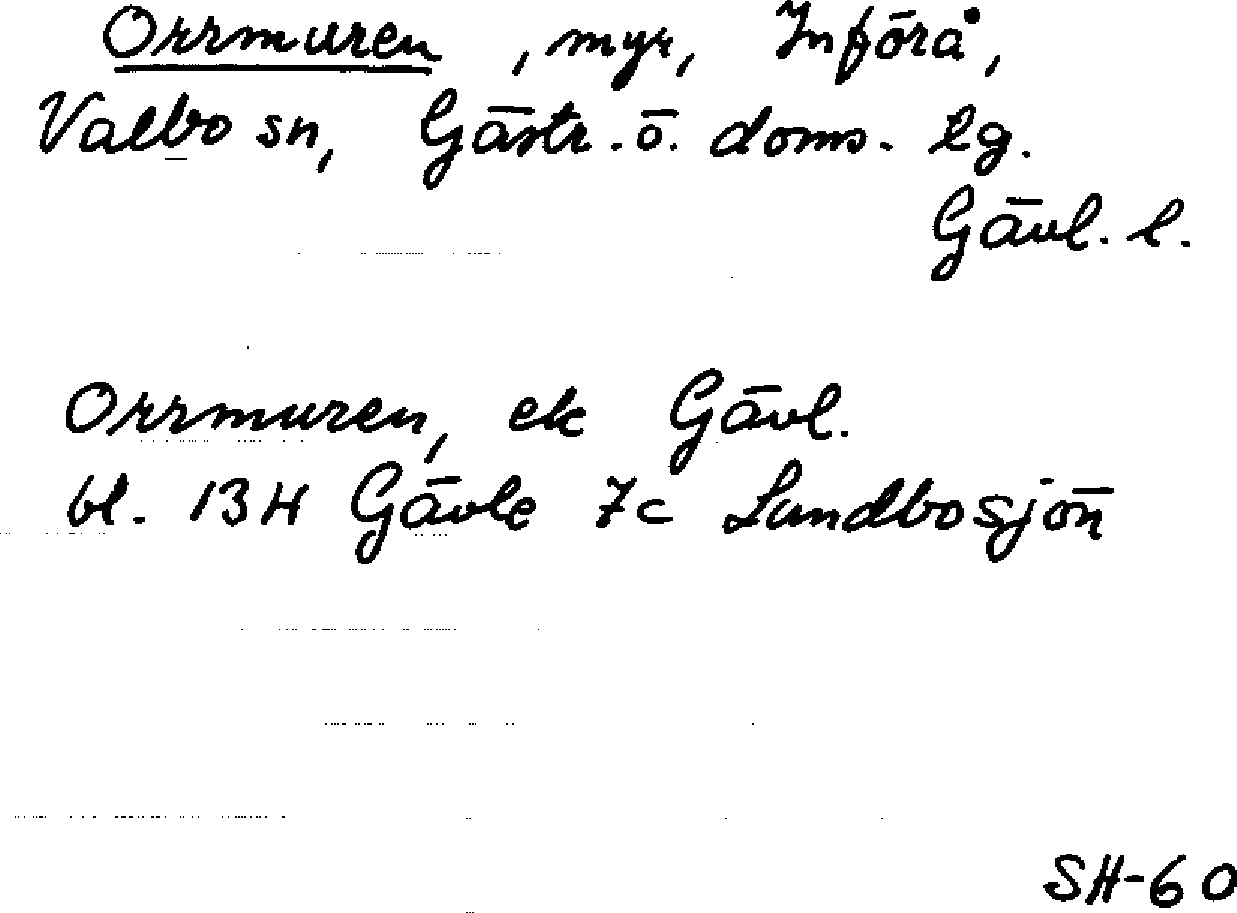 Orrmuren, myr, Införå,
Valbo sn, Gästr. ö. doms. lg.
Gävl. l.
Orrmuren, ek Gävl.
bl. 13H Gävle 7c Landbosjön
SH-60